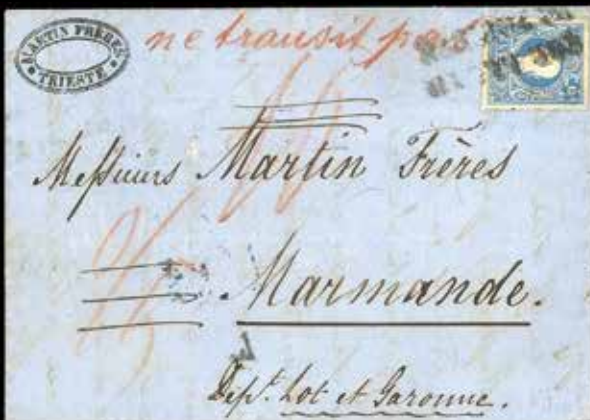 MARTIN FRÈRES
TRIESTE
ne transit pas
Messieurs Martin Frères
Marmande.
Dépt. Lot et Garonne.